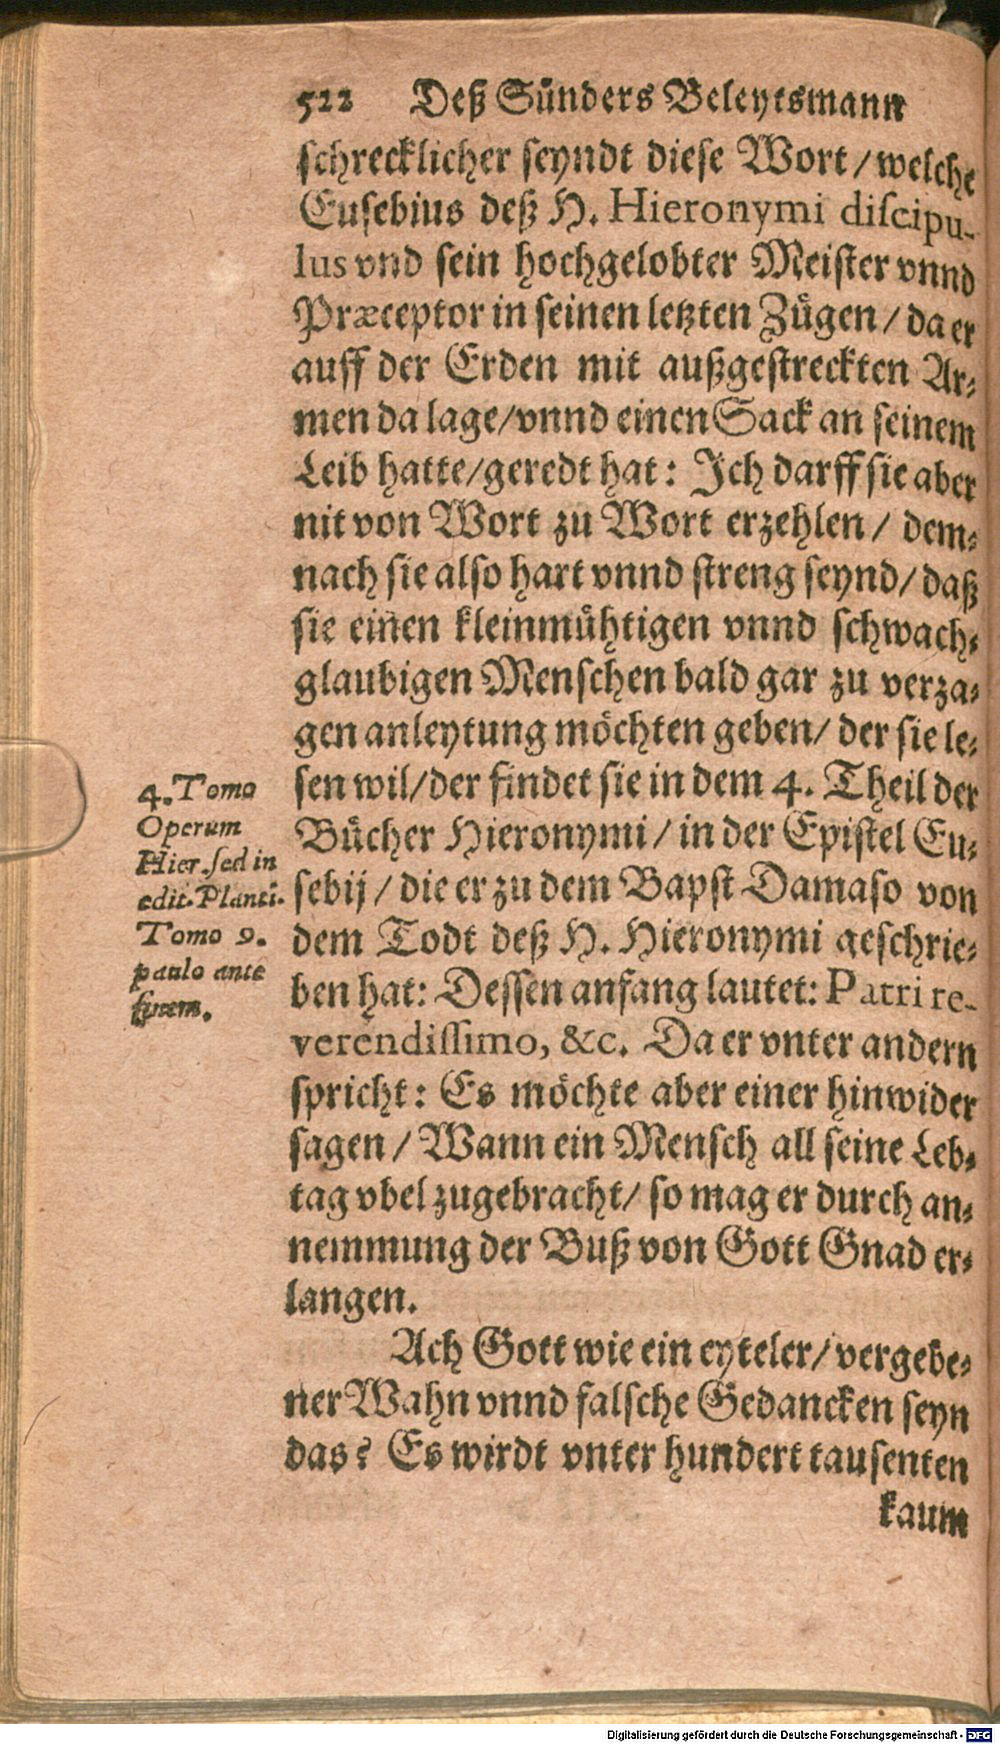 522 Deß Sünders Beleytsmann
schrecklicher seyndt diese Wort/welche
Eusebius deß H. Hieronymi discipu-
lus vnd sein hochgelobter Meister vnnd
Præceptor in seinen letzten Zügen/ da er
auff der Erden mit außgestreckten Ar-
men da lage/vnnd einen Sack an seinem
Leib hatte/geredt hat: Ich darff sie aber
nit von Wort zu Wort erzehlen/ dem-
nach sie also hart vnnd streng seynd/ daß
sie einen kleinmühtigen vnnd schwach-
glaubigen Menschen bald gar zu verza-
gen anleytung möchten geben/ der sie le-
sen wil/der findet sie in dem 4. Theil der
Bücher Hieronymi/ in der Epistel Eu-
sebij/ die er zu dem Bapst Damaso von
dem Todt deß H. Hieronymi geschrie-
ben hat: Dessen anfang lautet: Patri re-
verendissimo, &c. Da er vnter andern
spricht: Es möchte aber einer hinwider
sagen/ Wann ein Mensch all seine Leb-
tag vbel zugebracht/ so mag er durch an-
nemmung der Buß von Gott Gnad er-
langen.
Ach Gott wie ein eyteler/ vergebe-
ner Wahn vnnd falsche Gedancken seyn
das? Es wirdt vnter hundert tausenten
kaum
4. Tomo
Operum
Hier. sed in
edit. Planti.
Tomo 9.
paulo ante
finem.
Digitalisierung gefördert durch die Deutsche Forschungsgemeinschaft - DFG